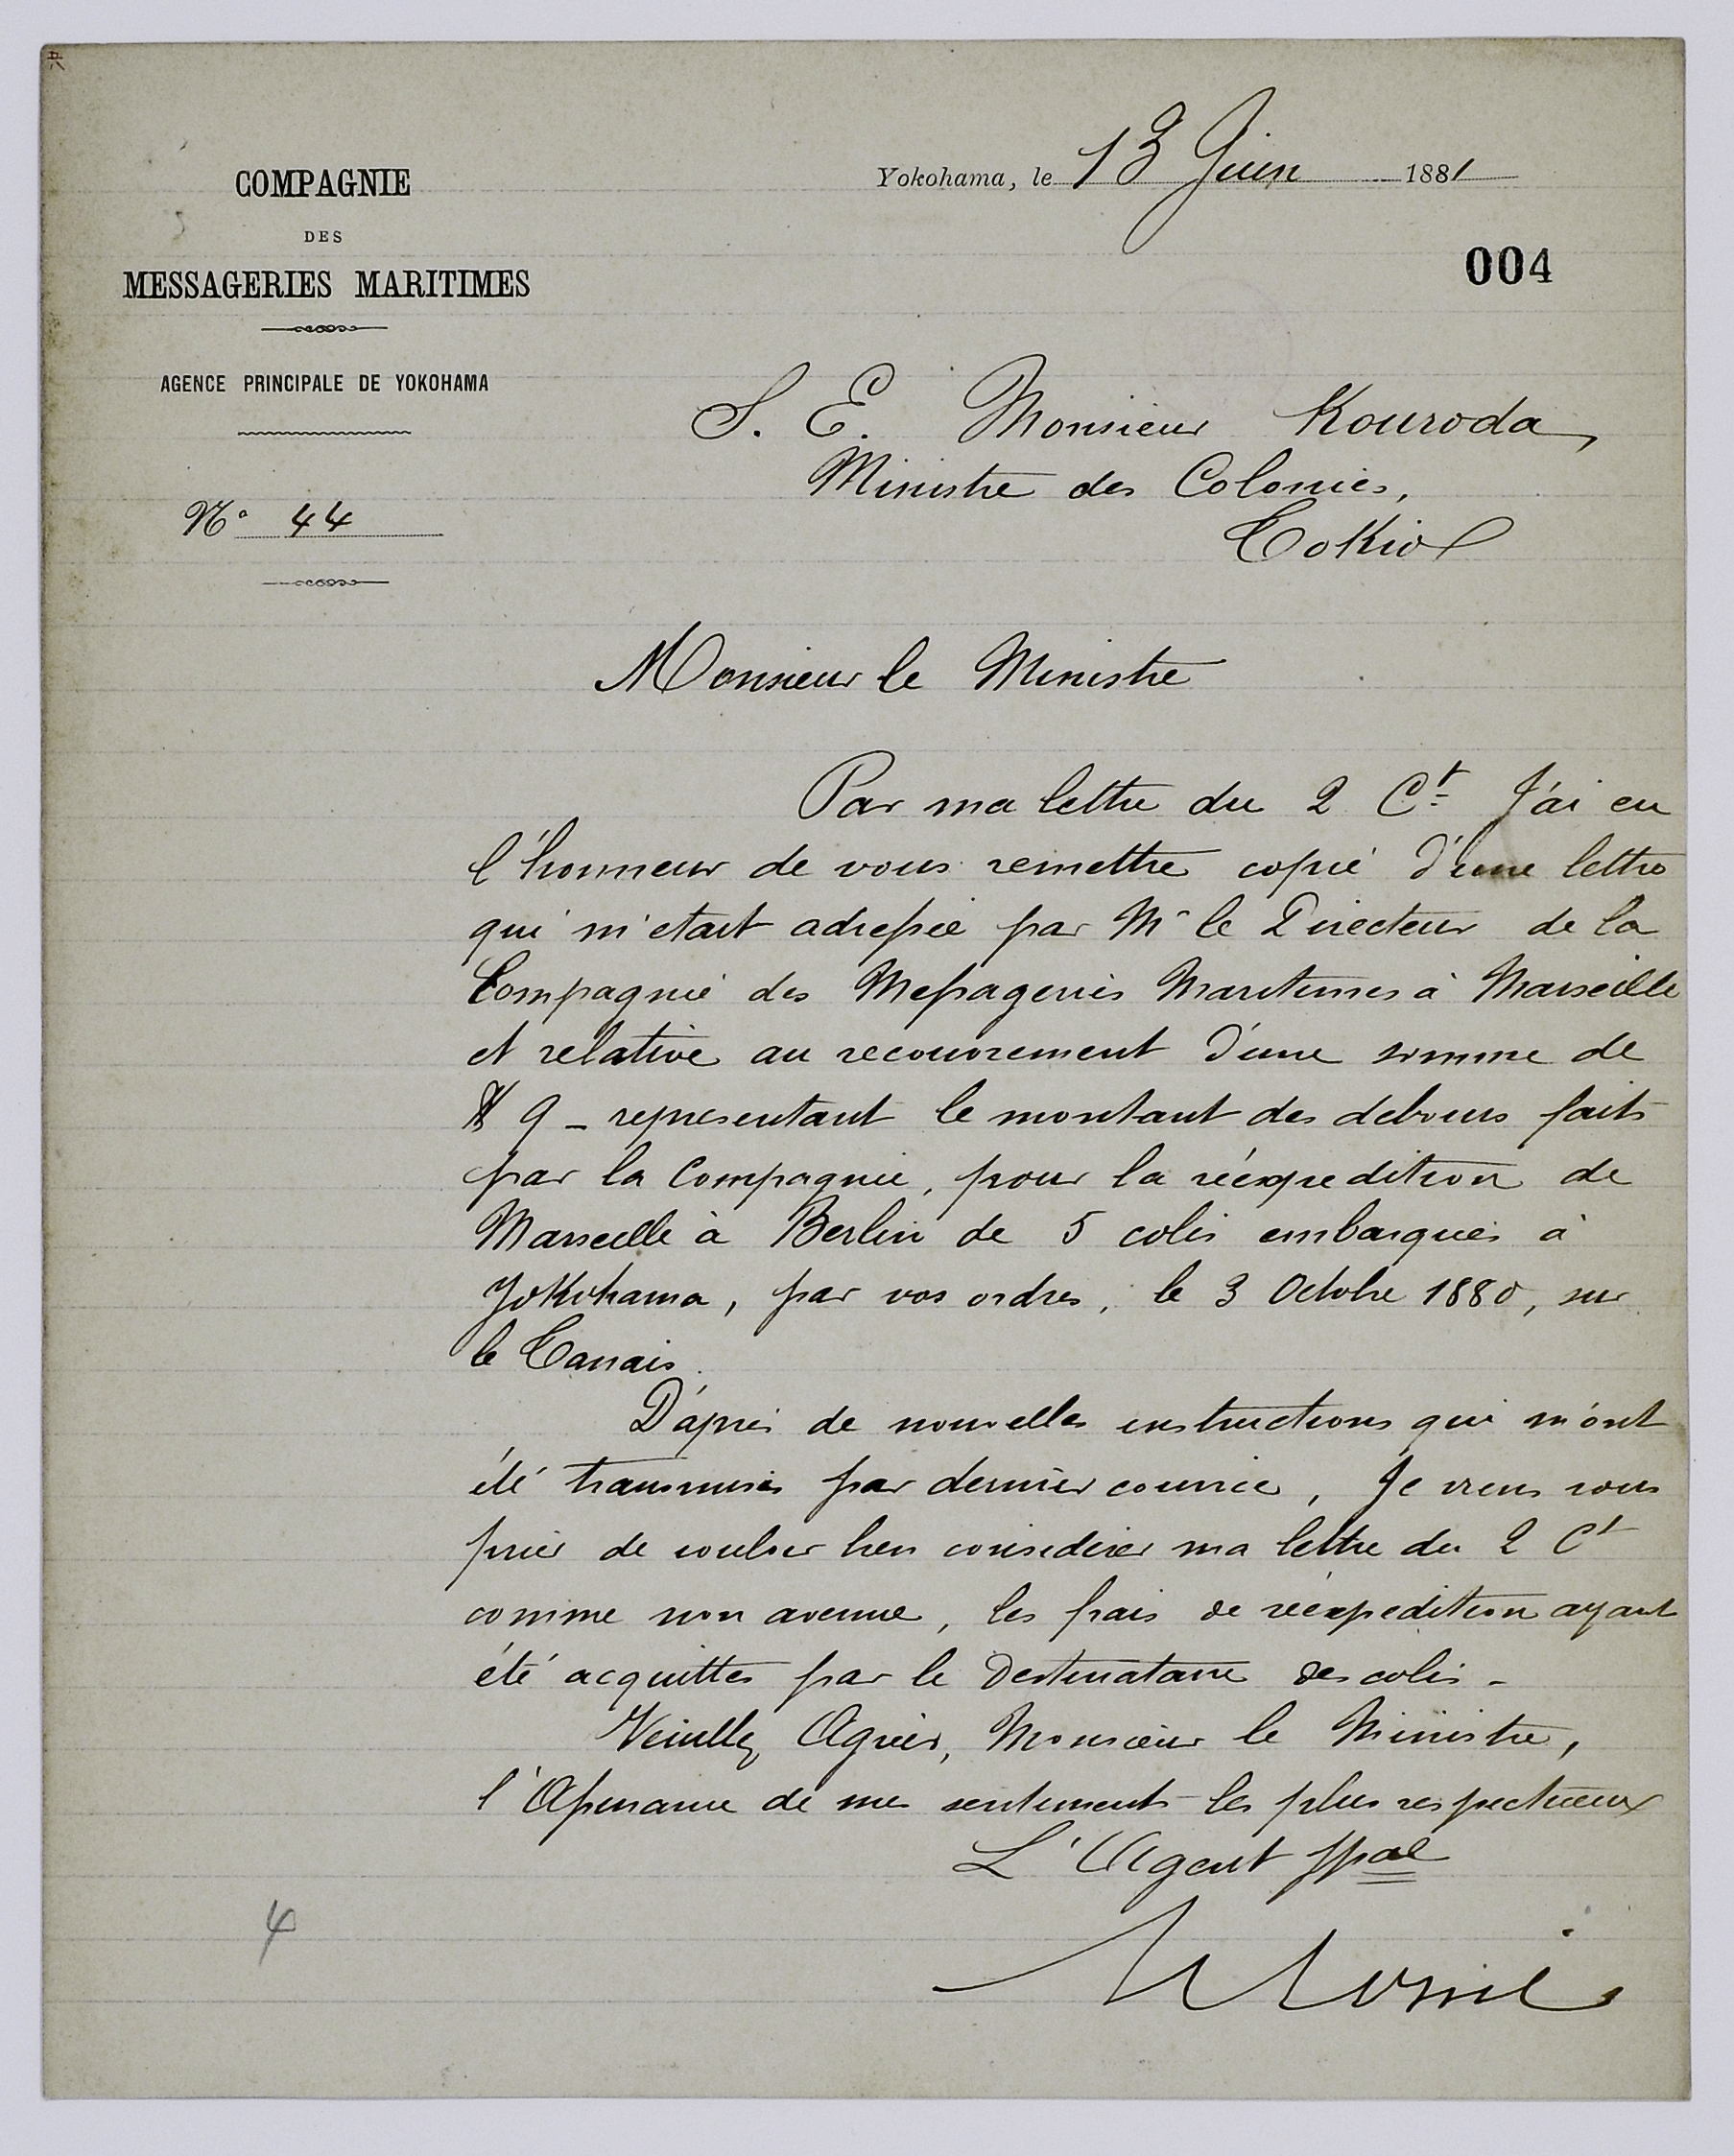 COMPAGNIE
DES
MESSAGERIES MARITIMES
AGENCE PRINCIPALE DE YOKOHAMA
N° 44
Yokohama, le 13 Juin 1881
004
S. E. Monsieur Kouroda,
Ministre des Colonies,
Tokio
Monsieur le Ministre
Par ma lettre du 2 Ct J'ai eu
l'honneur de vous remettre copie d'une lettre
qui m'etait adressée par Mr le Directeur de la
Compagnie des Messageries Maritimes à Marseille
et relative au recouvrement d'une somme de
$ 9 _ representant le montant des debours faits
par la Compagnie, pour la réexpedition de
Marseille à Berlin de 5 colis embarqués à
Yokohama, par vos ordres, le 3 Octobre 1880, sur
le Tanais.
D'après de nouvelles instructions qui m'ont
été transmises par dernier courrier, Je viens vous
prier de vouloir bien considerer ma lettre du 2 Ct
comme non avenue, les frais de réexpedition ayant
été acquittes par le Destinataire des colis -
Veuillez Agréer, Monsieur le Ministre,
l'Assurance de mes sentiments les plus respectueux
L'Agent ppal
4